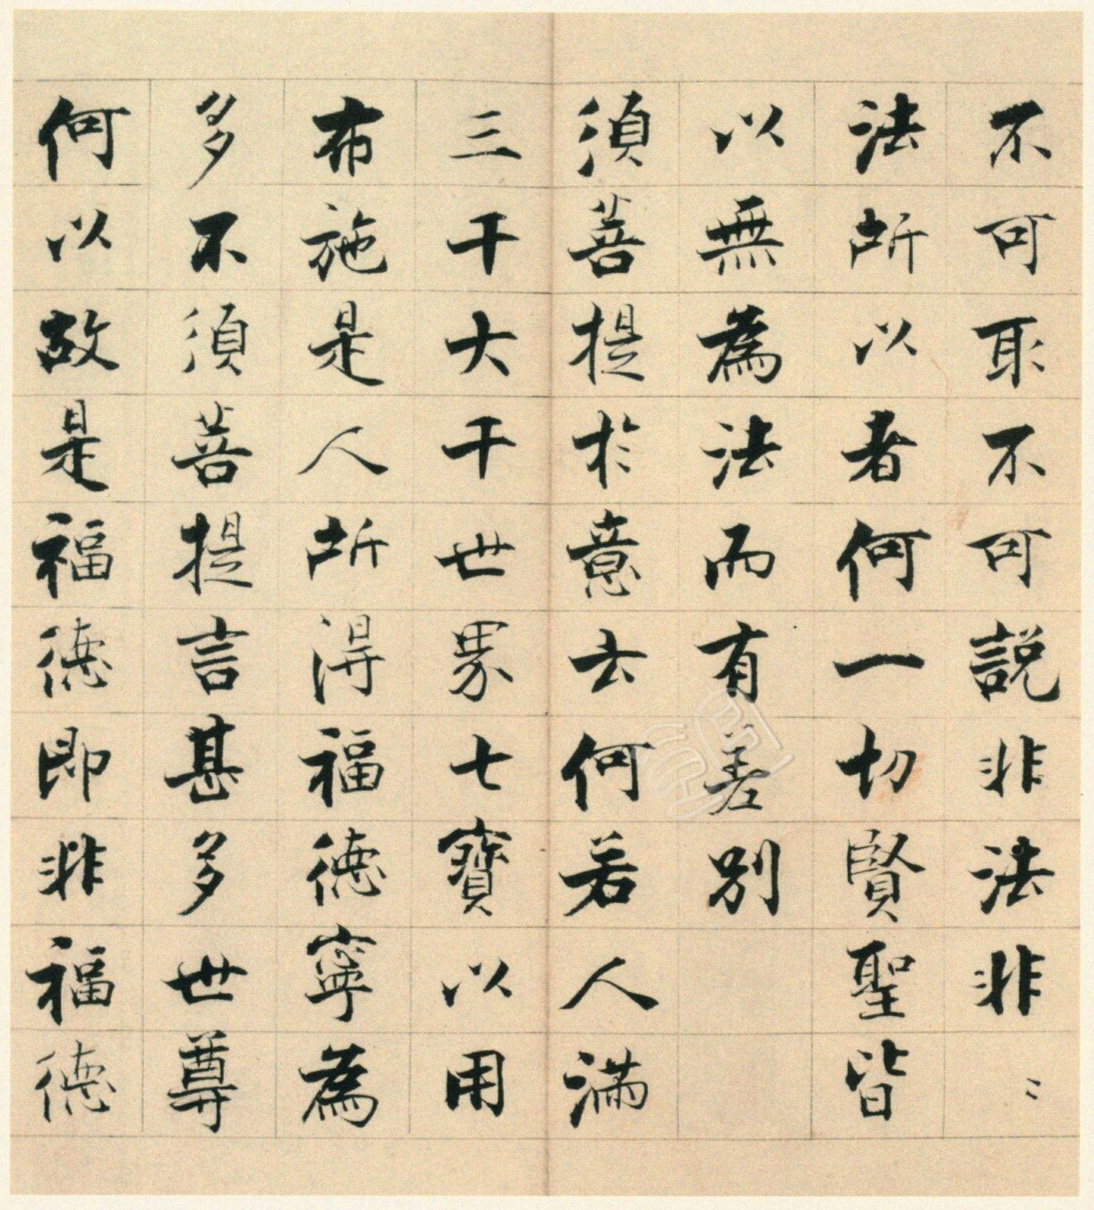 不可取不可説非法非〻
法所以者何一切賢聖皆
以無為法而有差别
須菩提於意云何若人滿
三千大千世界七寶以用
布施是人所得福德寧為
多不須菩提言甚多世尊
何以故是福德即非福德